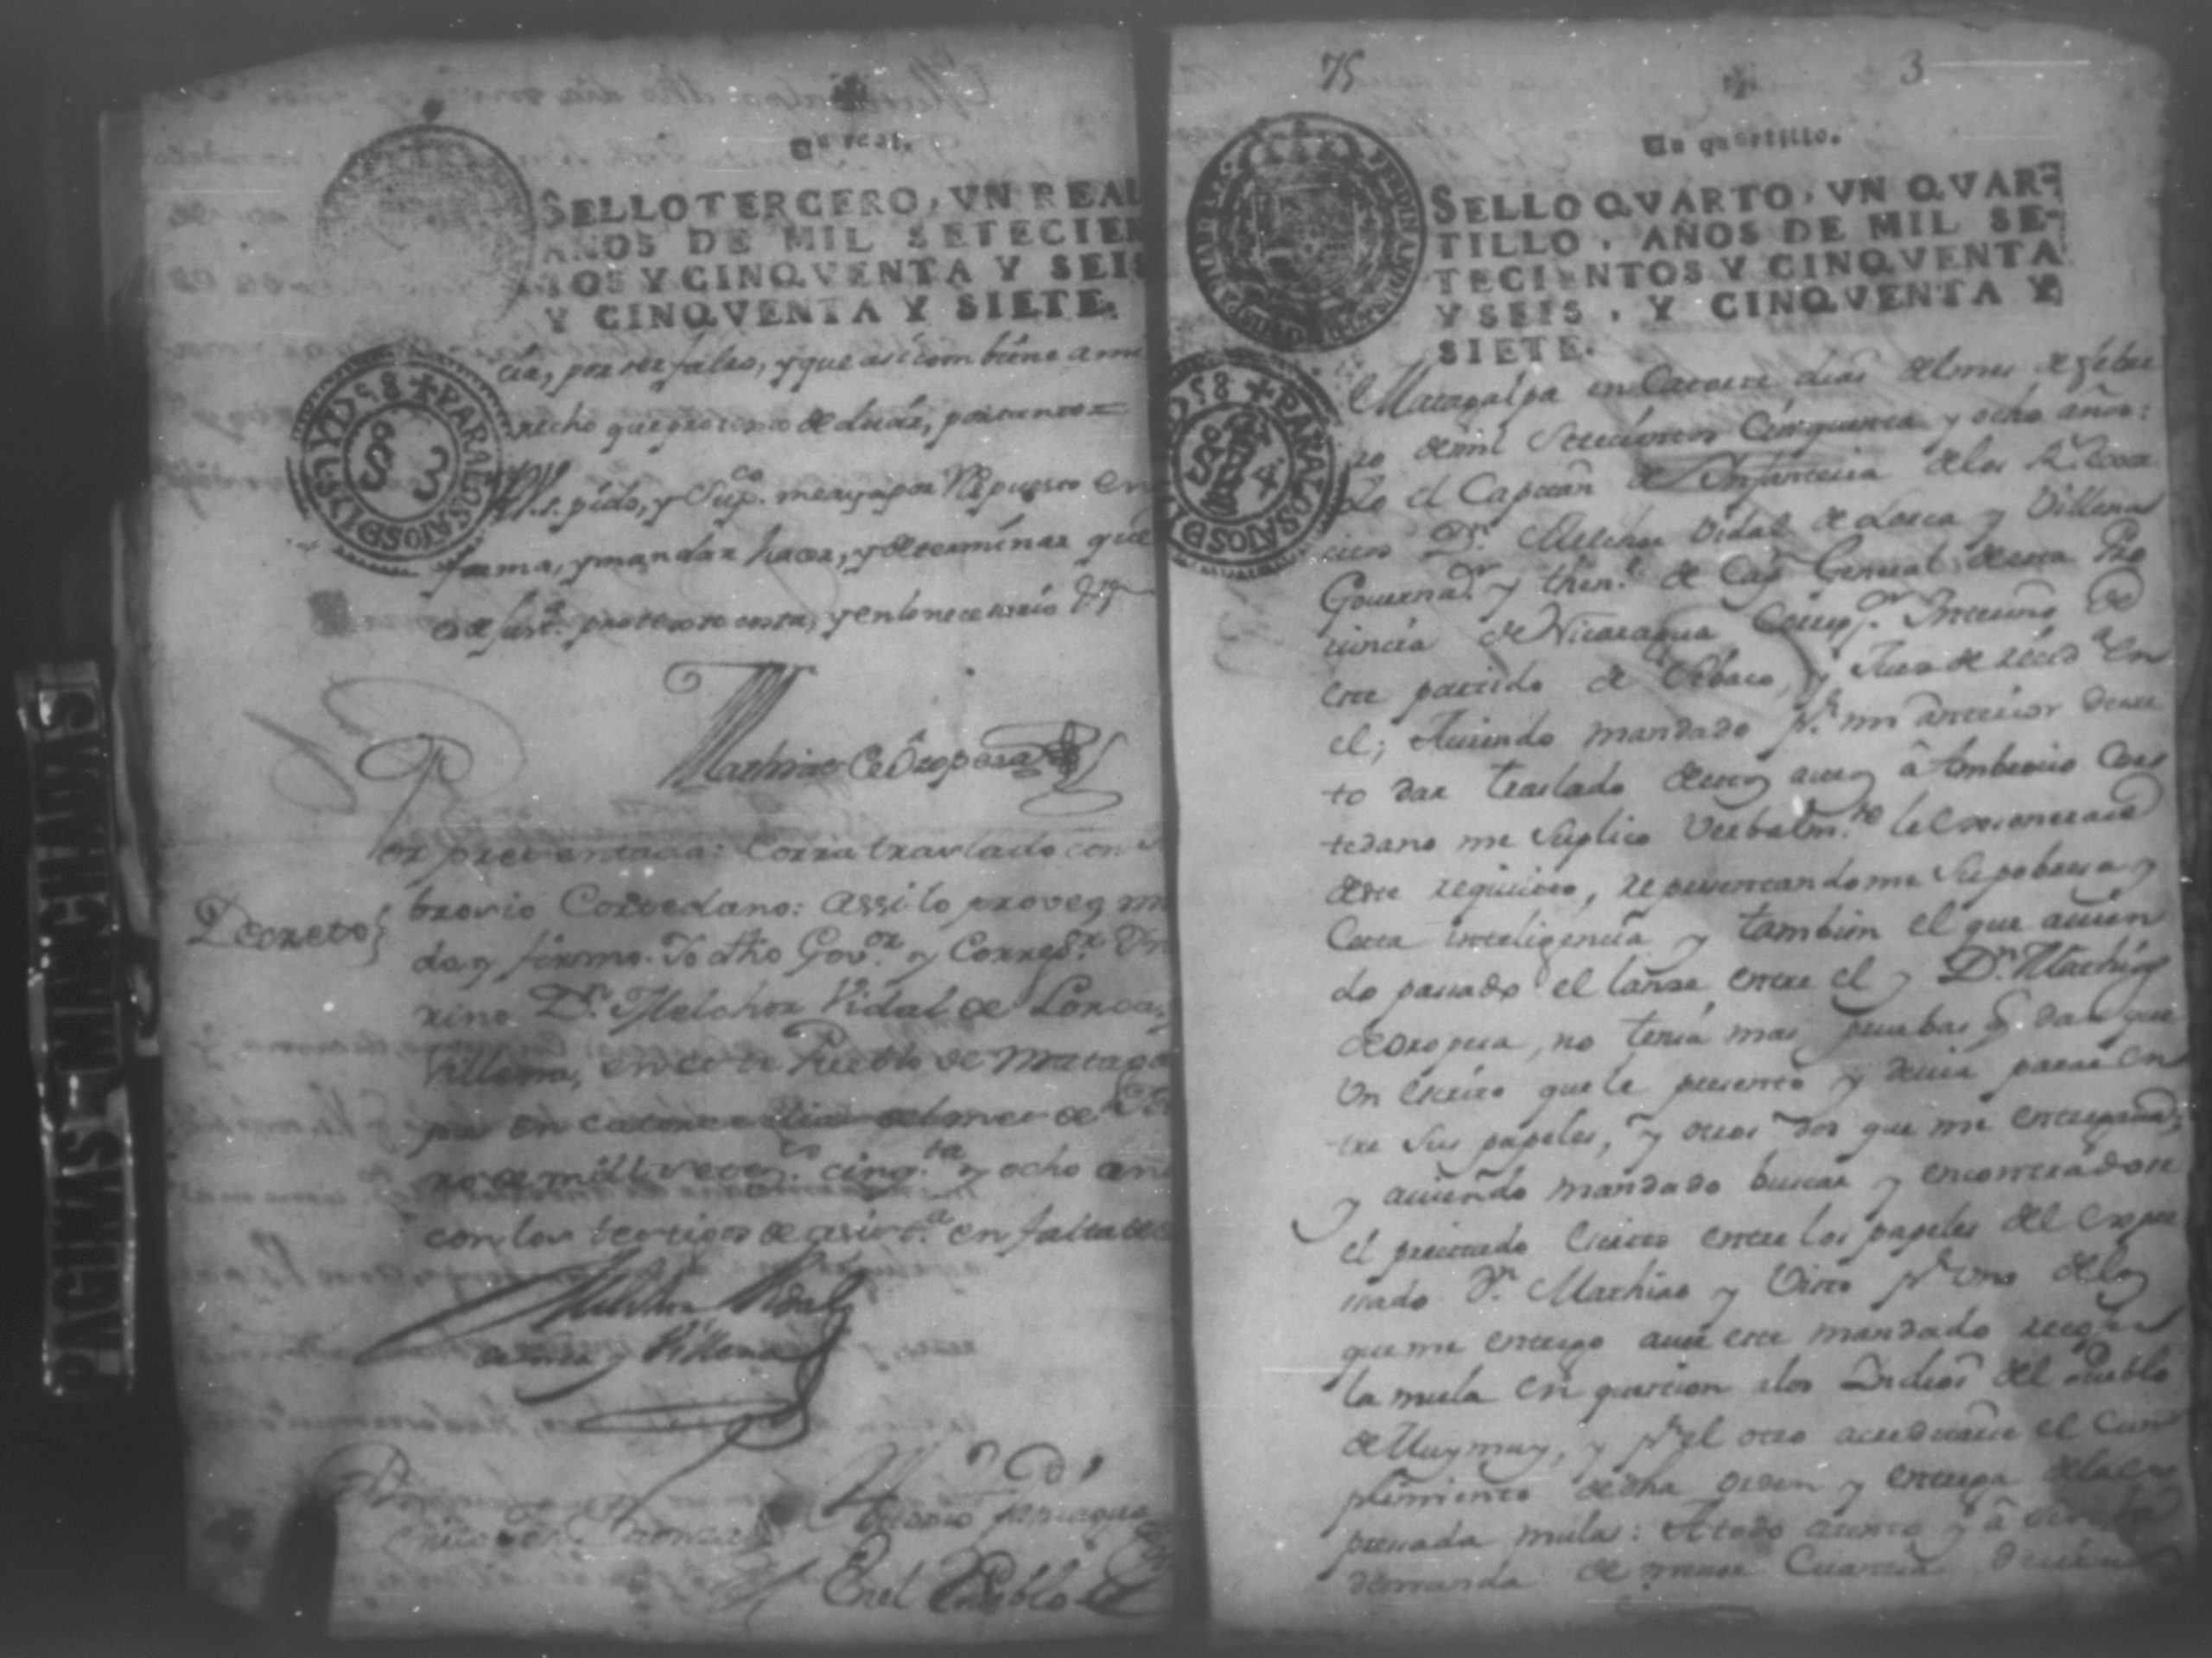 Un real.
SELLO TERCERO, VN REAL
AÑOS DE MIL SETECIEN
TOS Y CINQVENTA Y SEIS
Y CINQVENTA Y SIETE.
PARA LOS AÑOS DE 1757 Y 1758
S 3
cia, por ser falso, y que así combiene a mi
recho que protexto deducir, por tanto=
pido, y Sup.co me aya por Repuesto en
forma, y mandar hacer, y determinar que
es de just.a protexto costas, y en lo necesario
Mathias de Oropesa
Decreto
Por presentada: Corra traslado con
brocio Cortedano: assi lo proveo m
do y firmo. Yo dho Gov.or y Correg.r In
rino D.n Melchor Vidal de Lorca y
Villena, en este Pueblo de Matagal
pa en catorce dias del mes de
ro de mill setez.tos cinq.ta y ocho añ
con los testigos de asist.a en falta de
Melchor Vidal
de Lorca y Villena
En el Pueblo de
75
3
Un quartillo.
SELLO QVARTO, VN QVAR-
TILLO, AÑOS DE MIL SE-
TECIENTOS Y CINQVENTA
Y SEIS, Y CINQVENTA Y
SIETE.
PARA LOS AÑOS DE 1757 Y 1758
S 4
Matagalpa en Catorce dias del mes de febre
ro de mil Setecientos Cinquenta y ocho años:
Yo el Capitan de Infanteria de los R.s Exer
citos D.n Melchor Vidal de Lorca y Villena
Governad.r y then.te de Cap.n General de esta Pro
vincia de Nicaragua Correg.or Interino de
este partido de Sebaco, y Juez de resid.a en
el; Aviendo mandado p.r mi anterior decre
to dar traslado destos autos â Ambrocio Cor
tedano me suplico verbalm.te le exonerase
deste requicito, representandome Su pobresa y
Corta inteligencia y tambien el que avien
do passado el lanse entre el y D.n Mathias
de Oropesa, no tenia mas pruebas q.e dar que
Un escrito que le presento y devia parar en
tre sus papeles, y otros dos que me entregaria,
y aviendo mandado buscar y encontradose
el precitado escrito entre los papeles del expre
sado D.n Mathias y Visto p.r uno de los
que me entrego aver este mandado
la mula en question a los Indios del Pueblo
de Muymuy, y p.r el otro acreditarse el Cum
plimiento de dha orden y entrega de la ex
presada mula: A todo atento y â
demanda de menor Cuantia
PAGINAS MANCHADAS